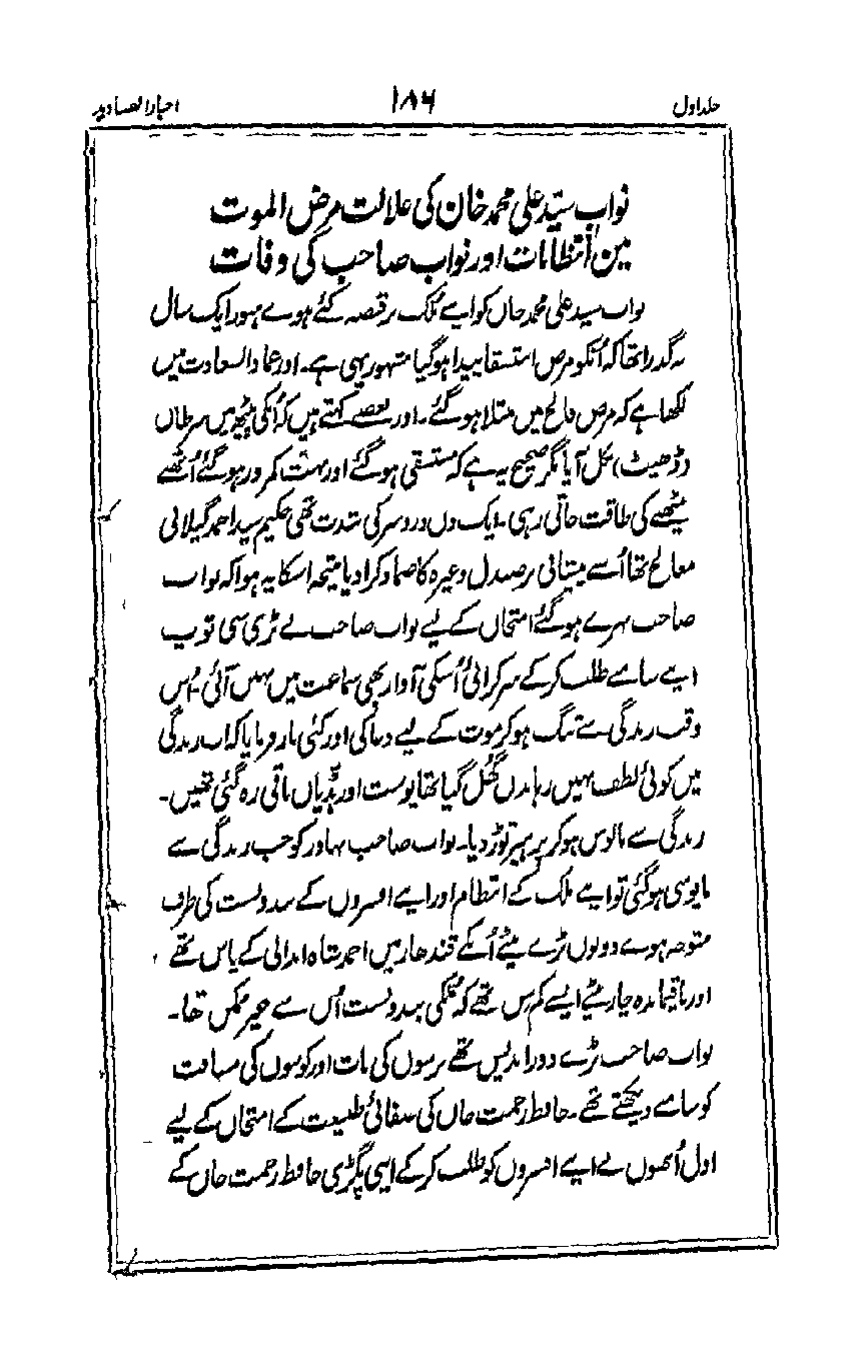 جلد اول ۱۸۶ اخبار الصنادید
نواب سید علی محمد خان کی علالت مرض الموت
مین انتظامات اور نواب صاحب کی وفات
نواب سید علی محمد خاں کو اپنے ملک پر قبضہ کئے ہوے ہنوز ایک سال
نہ گذرا تھا کہ اُنکو مرض استسقا پیدا ہوگیا مشہور یہی ہے۔ اور عماد السعادت میں
لکھا ہے کہ مرض فالج میں مبتلا ہوگئے۔ اور بعضے کہتے ہیں کہ اُنکی پیٹھ میں سرطان
(ڈھیٹ) نکل آیا مگر صحیح یہ ہے کہ مستسقی ہوگئے اور بہت کمزور ہوگئے اُٹھنے
بیٹھنے کی طاقت جاتی رہی۔ ایک دن درد سر کی شدت تھی حکیم سید احمد گیلانی
معالج تھا اُسنے پیشانی پر صندل وغیرہ کا ضماد کرا دیا نتیجہ اسکا یہ ہوا کہ نواب
صاحب بہرے ہوگئے امتحان کے لیے نواب صاحب نے بڑی سی توپ
اپنے سامنے طلب کرکے سر کرائی اُسکی آواز بھی سماعت میں نہیں آئی۔ اُس
وقت زندگی سے تنگ ہوکر موت کے لیے دعا کی اور کئی بار فرمایا کہ اب زندگی
میں کوئی لطف نہیں رہا بدن گھل گیا تھا پوست اور ہڈیاں باقی رہ گئی تھیں۔
زندگی سے مایوس ہوکر پرہیز توڑ دیا۔ نواب صاحب بہادر کو جب زندگی سے
مایوسی ہوگئی تو اپنے ملک کے انتظام اور اپنے افسروں کے بندوبست کی طرف
متوجہ ہوے دونوں بڑے بیٹے اُنکے قندھار میں احمد شاہ ابدالی کے پاس تھے
اور باقیماندہ چار بیٹے ایسے کم سن تھے کہ ملکی بندوبست اُن سے غیر ممکن تھا۔
نواب صاحب بڑے دور اندیش تھے برسوں کی بات اور کوسوں کی مسافت
کو سامنے دیکھتے تھے۔ حافظ رحمت خاں کی صفائی طبیعت کے امتحان کے لیے
اول اُنھوں نے اپنے افسروں کو طلب کرکے اپنی پگڑی حافظ رحمت خاں کے